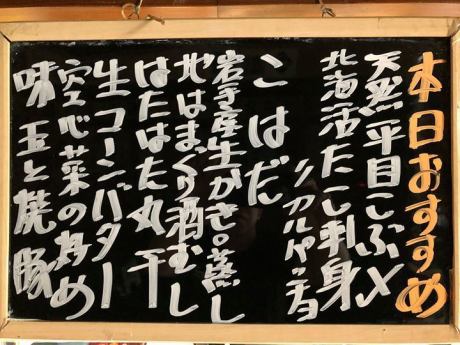 本日おすすめ
天然平目こぶ〆
北海活たこ刺身
〃カルパッチョ
こはだ
岩手産生がき。蒸し
地はまぐり酒むし
はたはた丸干
生コーンバター
空心菜の炒め
味玉と焼豚